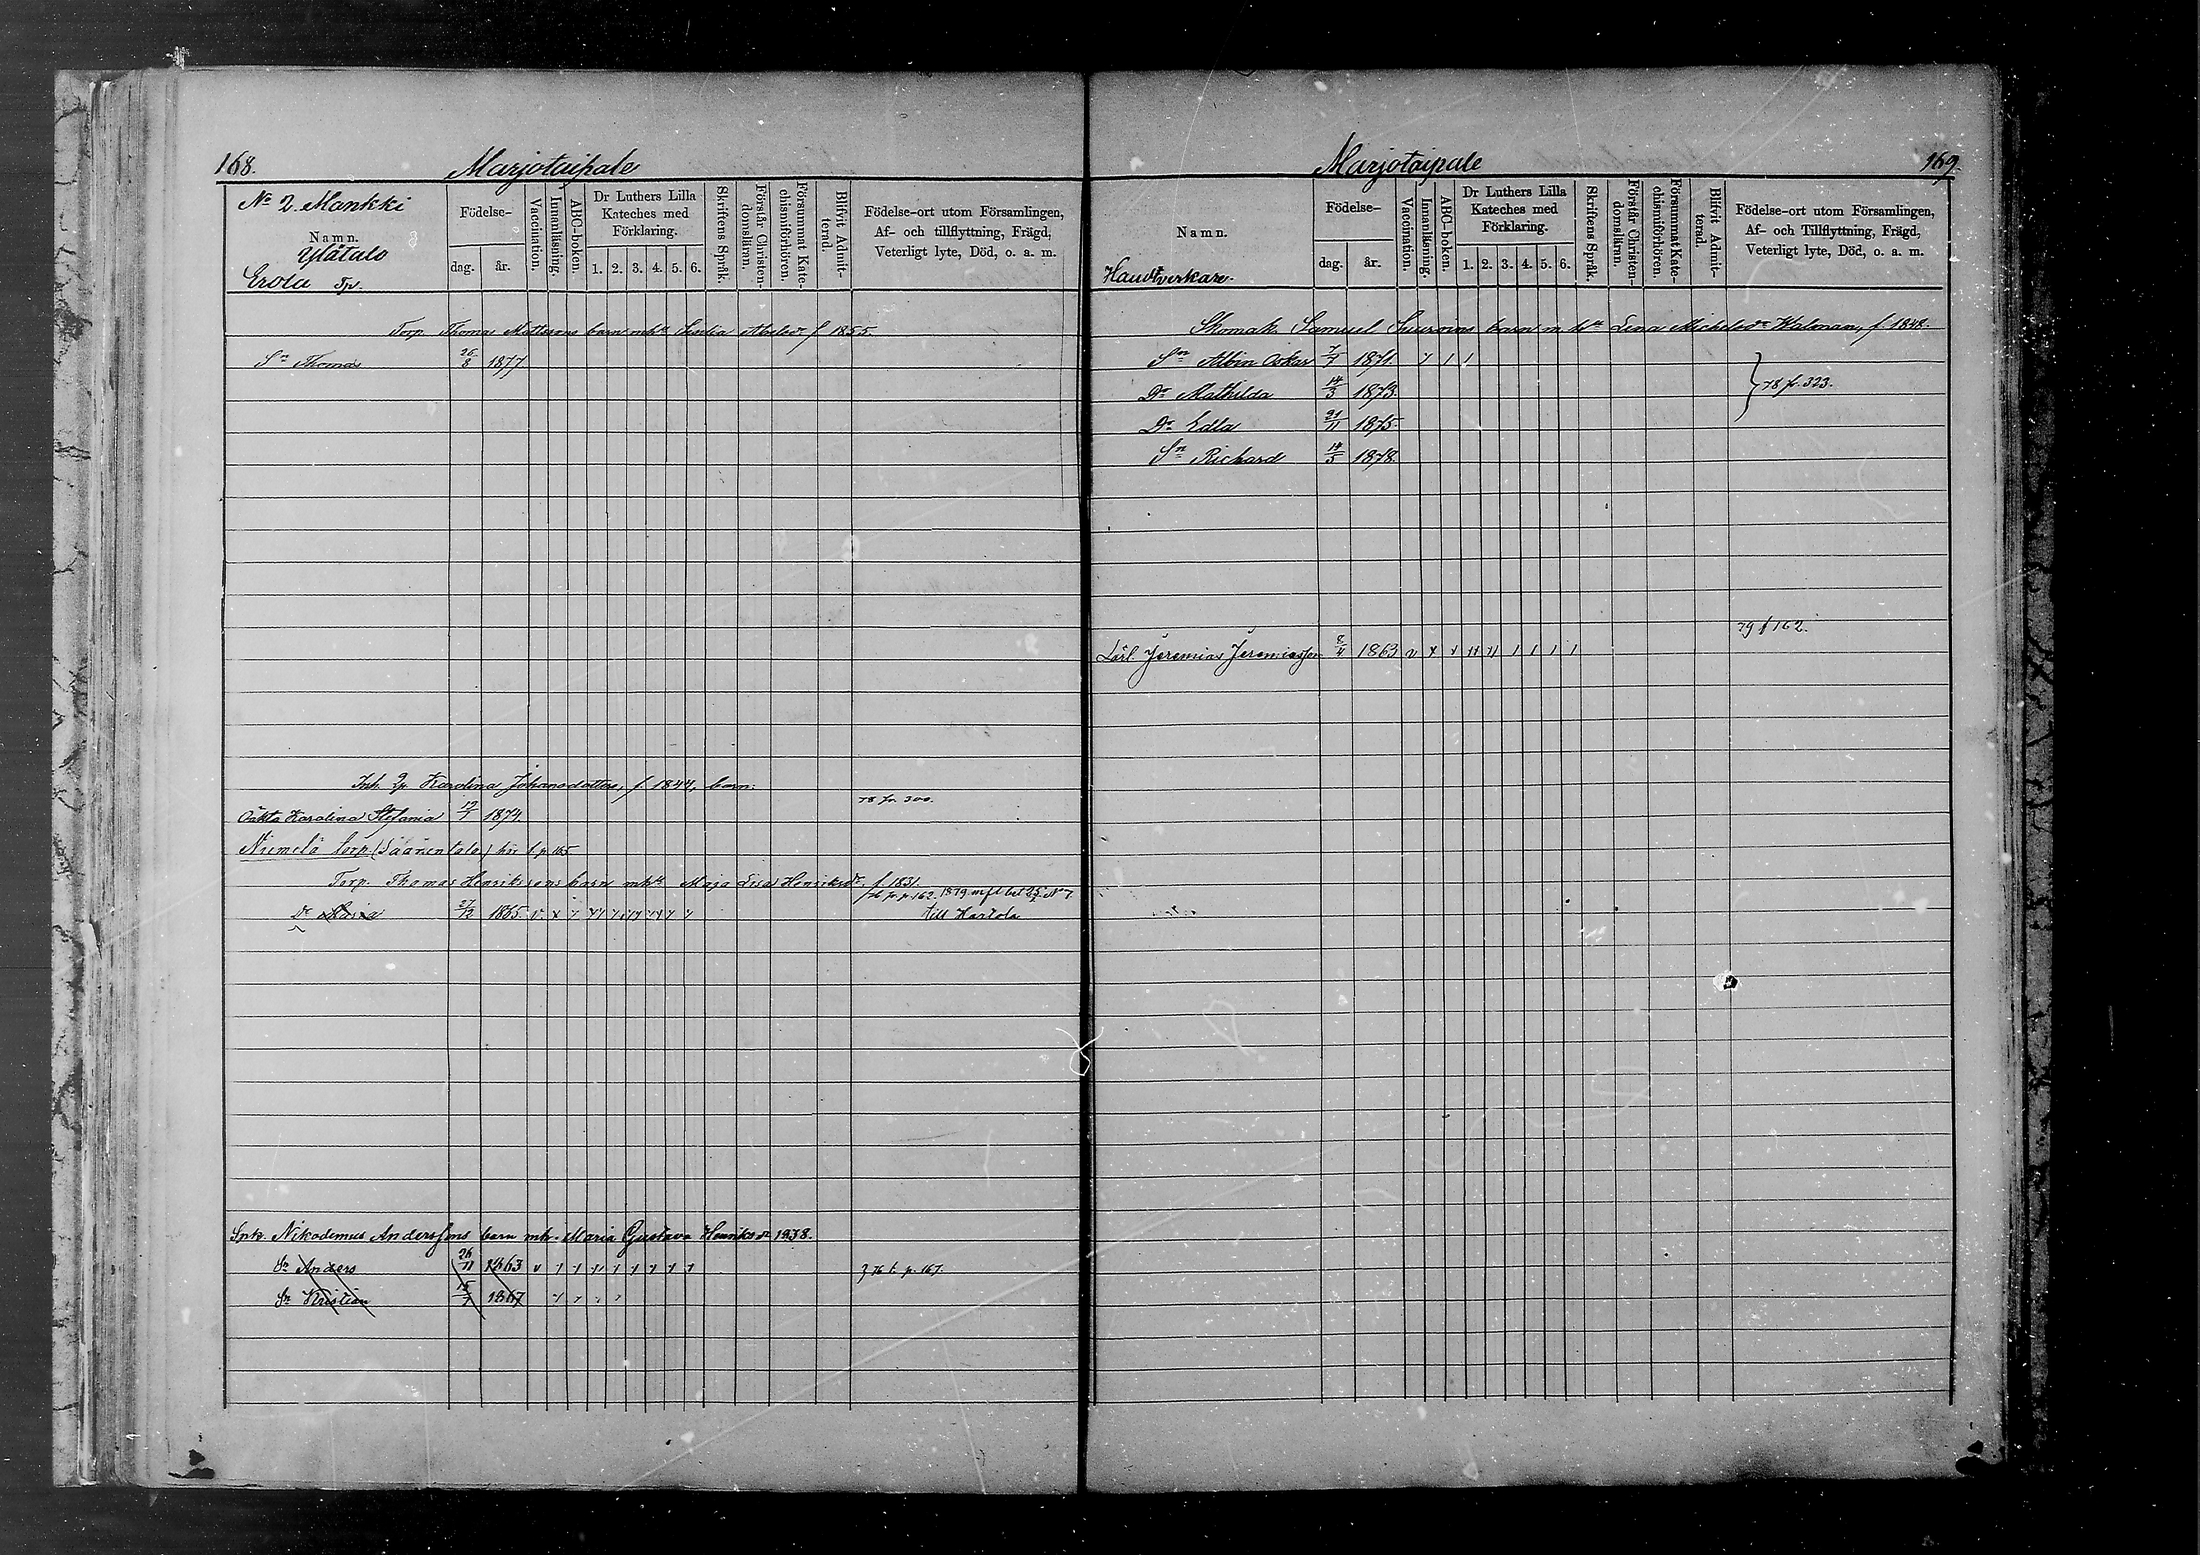 168. Marjotaipale
No 2. Mankki
Namn.
Ylätalo
Erola Tp.
Födelse-
dag. år.
Vaccination.
Innanläsning.
ABC-boken.
Dr Luthers Lilla
Kateches med
Förklaring.
1. 2. 3. 4. 5. 6.
Skriftens Språk.
Förstår Christen-
domsläran.
Försummat Kate-
chismiförhören.
Blifvit Admit-
terad.
Födelse-ort utom Församlingen,
Af- och tillflyttning, Frägd,
Veterligt lyte, Död, o. a. m.
Torp. Thomas Mattssons barn m. h. f 1855.
Sn Thomas 26/8 1877
Inh. Karolina Johansdotters, f. 1844, barn:
78 fr. 300.
Oäkta Karolina Stefania 1874.
Niemelä torp. (Säärentalo) hör t. p 165.
Torp. Thomas Henrikssons barn m h Maja Lisa Henriksdr. f. 1831.
fr p. 162. 1879 m fl bet 25/2 No 7
Dr Maria 27/12 1865 v. x
till Hartola
Nikodemus Anderssons barn m h. Maria Gustava Henriksdr 1838.
Sn Anders 26/11 1863 v
76 t. p. 167.
Sn Kristian 15/7 1867
Marjotaipale 169.
Namn.
Handtverkare
Födelse-
dag. år.
Vaccination.
Innanläsning.
ABC-boken.
Dr Luthers Lilla
Kateches med
Förklaring.
1. 2. 3. 4. 5. 6.
Skriftens Språk.
Förstår Christen-
domsläran.
Försummat Kate-
chismiförhören.
Blifvit Admit-
terad.
Födelse-ort utom Församlingen,
Af- och Tillflyttning, Frägd,
Veterligt lyte, Död, o. a. m.
Skomak. Samuel barn m. h. Lena Michelsdr Walman, f 1848.
Sn Albin Oskar 7/1 1871
Dr Mathilda 14/3 1873.
78 fr. 323.
Dr Edla 21/11 1875
Sn Richard 14/5 1878
79 f 162.
Lärl Jeremias Jeremiasson 8/4 1863 v x